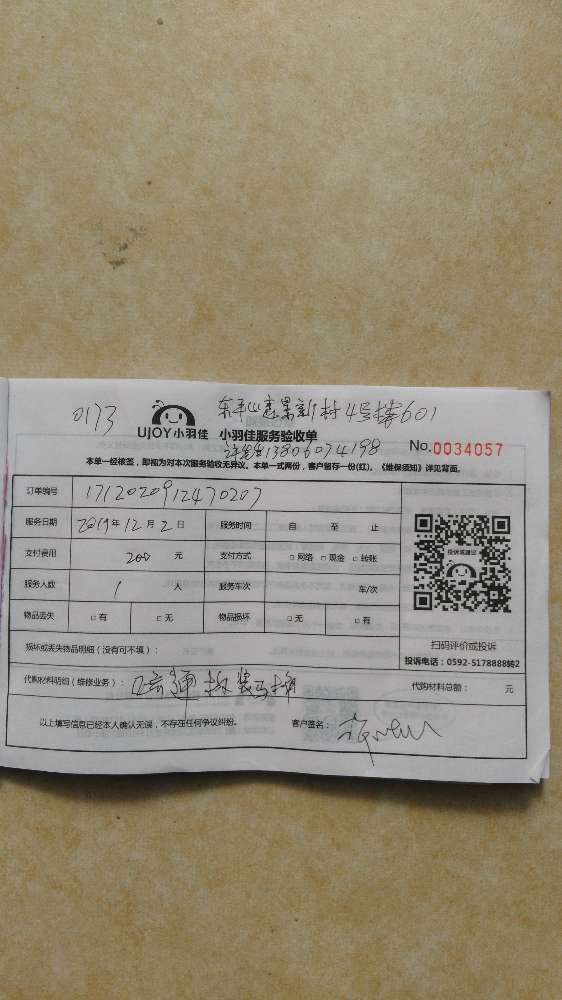 0173 UJOY小羽佳 小羽佳服务验收单 4号楼601
13806074198 No.0034057
本单一经核签，即视为对本次服务验收无异议。本单一式两份，客户留存一份(红)。《维保须知》详见背面。
订单编号 1712020912470207
服务日期 年12月2日 服务时间 自 至 止
支付费用 200 元 支付方式 □ 网络 □ 现金 □ 转账
服务人数 1 人 服务车次 车/次
物品丢失 □ 有 □ 无 物品损坏 □ 无 □ 有
扫码评价或投诉
投诉电话：0592-5178888转2
损坏或丢失物品明细（没有可不填）：
代购材料明细（维修业务）： 代购材料总额： 元
以上填写信息已经本人确认无误，不存在任何争议纠纷。 客户签名：